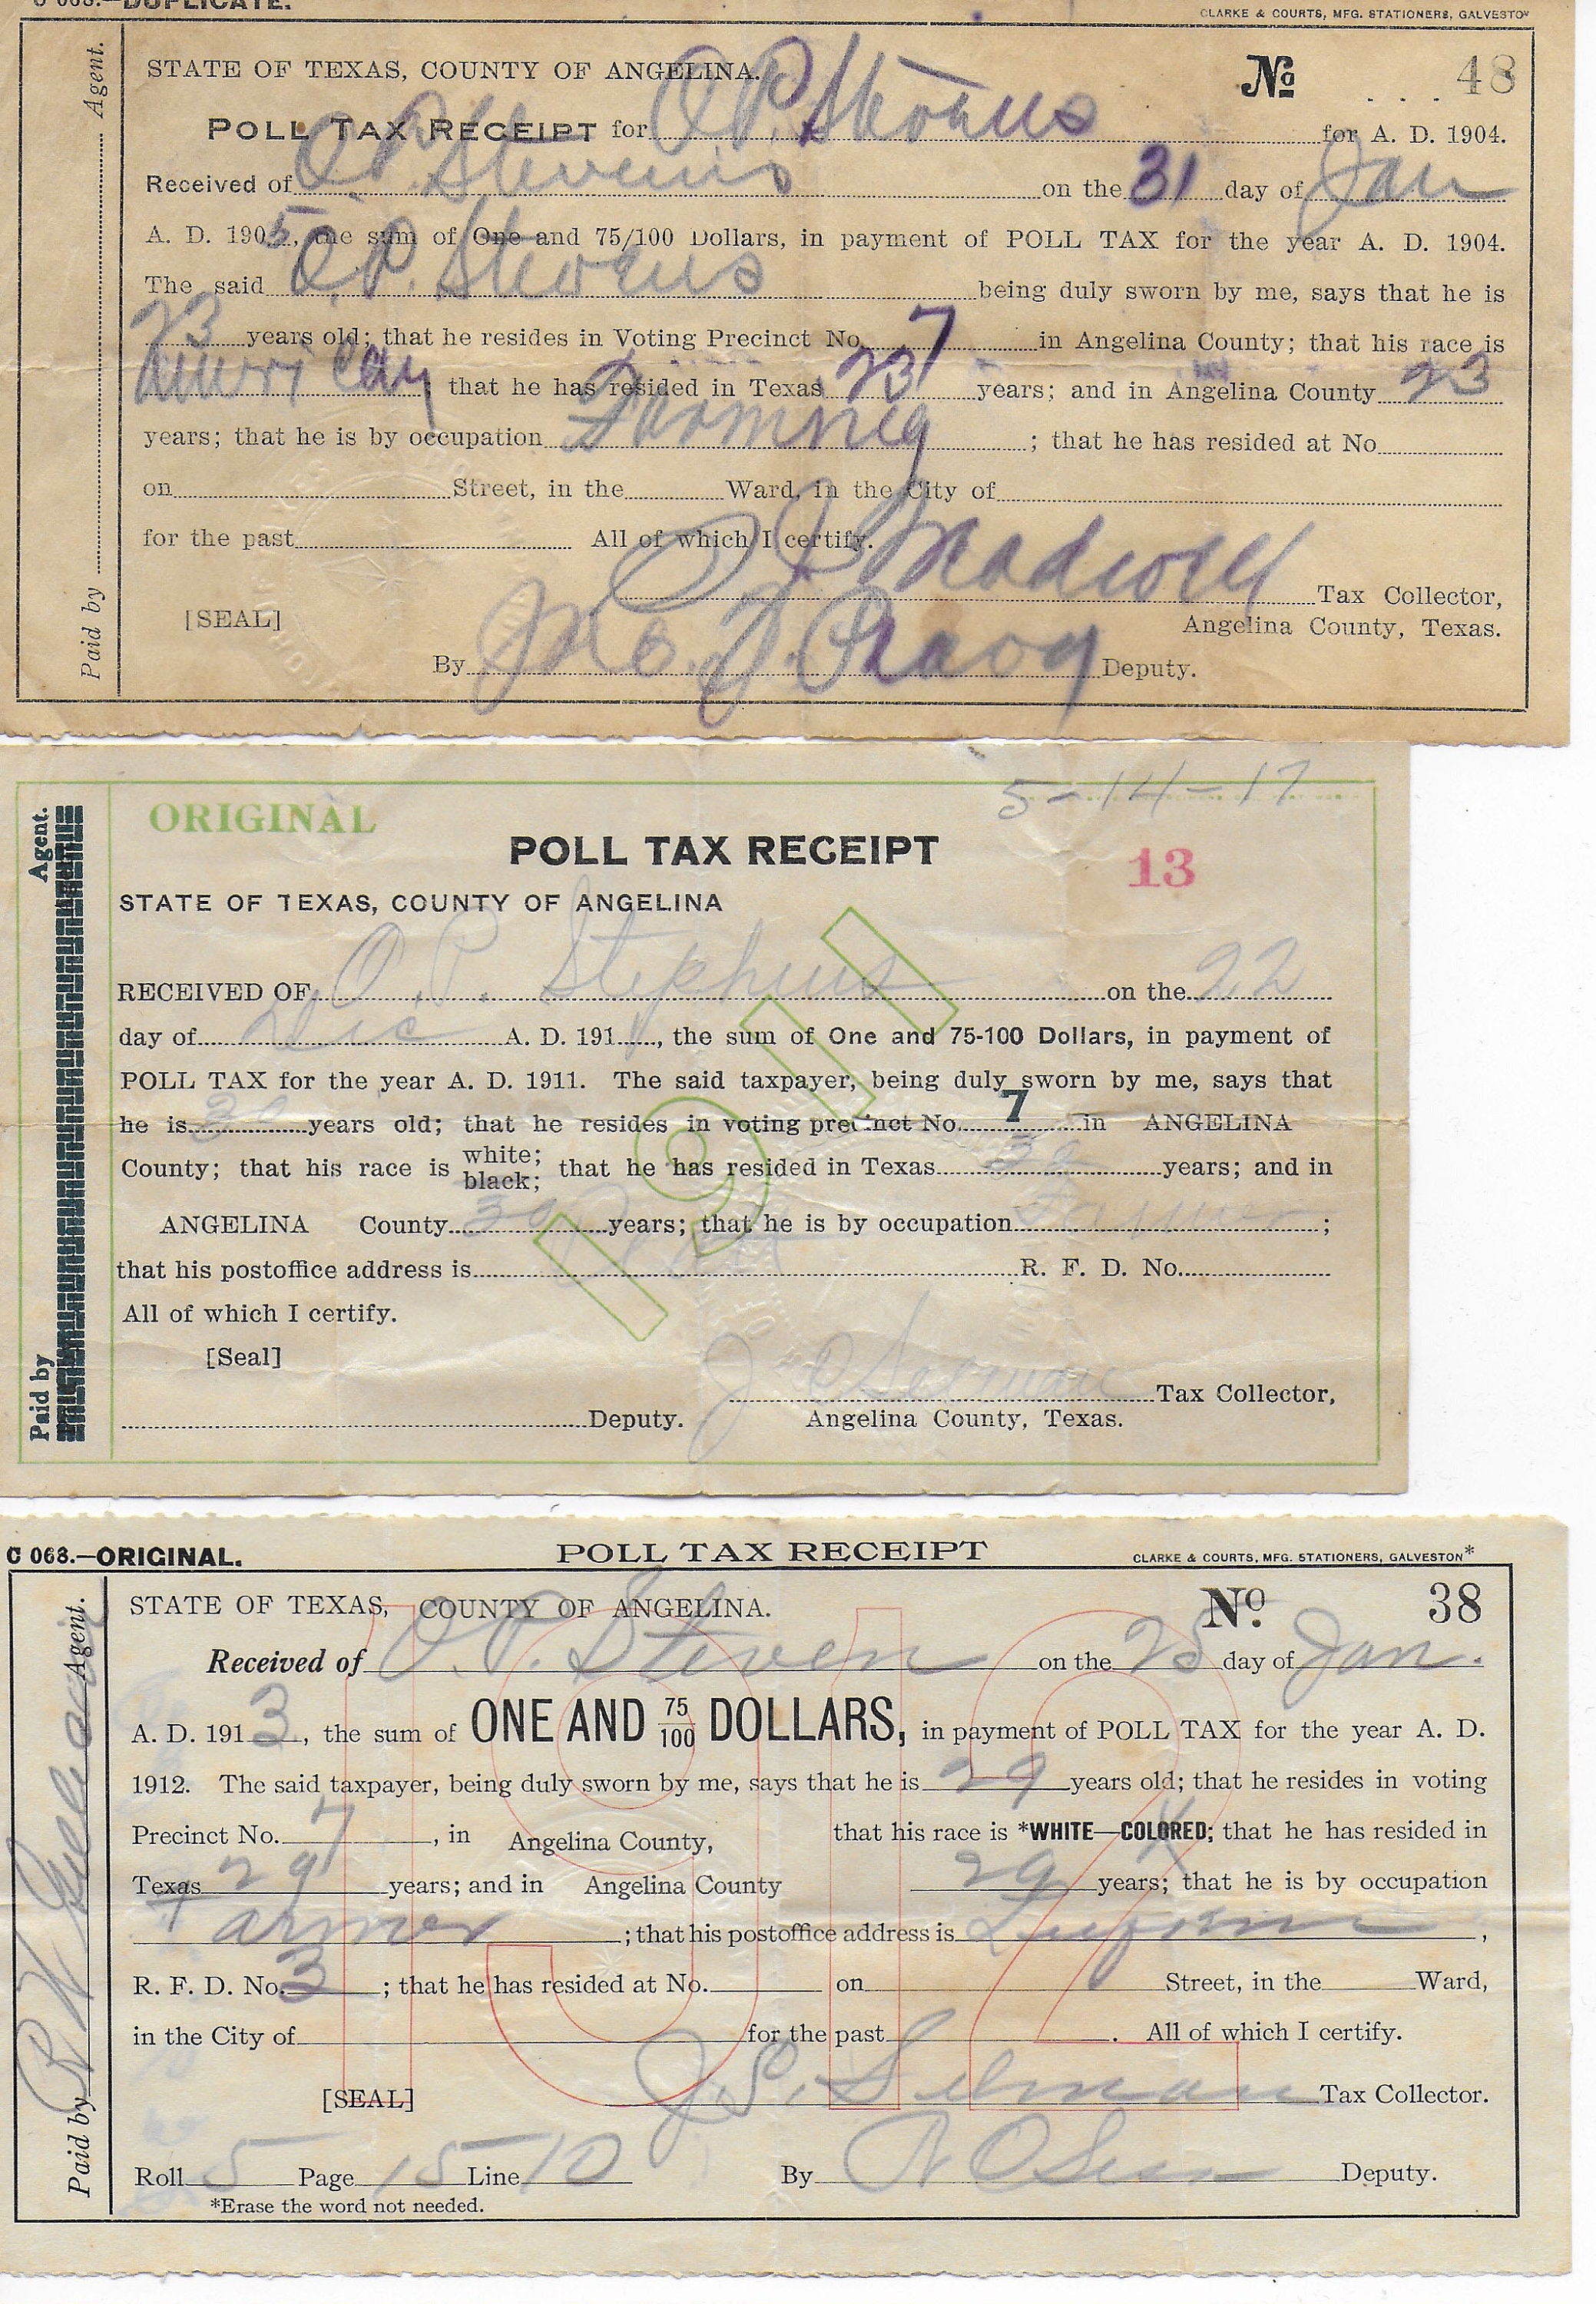 C 068.—DUPLICATE.
CLARKE & COURTS, MFG. STATIONERS, GALVESTON
STATE OF TEXAS, COUNTY OF ANGELINA. No 48
POLL TAX RECEIPT for O.P. Stevens for A. D. 1904.
Received of O.P. Stevens on the 31 day of Jan
A. D. 1905, the sum of One and 75/100 Dollars, in payment of POLL TAX for the year A. D. 1904.
The said O.P. Stevens being duly sworn by me, says that he is
23 years old; that he resides in Voting Precinct No. 7 in Angelina County; that his race is
American that he has resided in Texas 23 years; and in Angelina County 23
years; that he is by occupation ; that he has resided at No
on Street, in the Ward, in the City of
for the past All of which I certify.
Tax Collector,
[SEAL] Angelina County, Texas.
By Jno. Deputy.
Paid by Agent.
5-14-17
ORIGINAL
POLL TAX RECEIPT 13
STATE OF TEXAS, COUNTY OF ANGELINA
RECEIVED OF O. P. Stephens on the 22
day of Dec A. D. 1911, the sum of One and 75-100 Dollars, in payment of
POLL TAX for the year A. D. 1911. The said taxpayer, being duly sworn by me, says that
he is 30 years old; that he resides in voting precinct No. 7 in ANGELINA
County; that his race is white; black; that he has resided in Texas 30 years; and in
ANGELINA County 30 years; that he is by occupation Farmer ;
that his postoffice address is R. F. D. No.
All of which I certify.
[Seal]
Tax Collector,
Deputy. Angelina County, Texas.
Paid by Agent.
1911
C 068.—ORIGINAL. POLL TAX RECEIPT CLARKE & COURTS, MFG. STATIONERS, GALVESTON*
STATE OF TEXAS, COUNTY OF ANGELINA. No. 38
Received of O.P. Steven on the 28 day of Jan.
A. D. 1913, the sum of ONE AND 75/100 DOLLARS, in payment of POLL TAX for the year A. D.
1912. The said taxpayer, being duly sworn by me, says that he is 29 years old; that he resides in voting
Precinct No. 7, in Angelina County, that his race is *WHITE—COLORED; that he has resided in
Texas 29 years; and in Angelina County 29 years; that he is by occupation
Farmer ; that his postoffice address is Lufkin,
R. F. D. No. 3 ; that he has resided at No. on Street, in the Ward,
in the City of for the past . All of which I certify.
[SEAL] J. S. Selman Tax Collector.
Roll 5 Page 15 Line 10 By Deputy.
*Erase the word not needed.
Paid by R W Agent.
1912